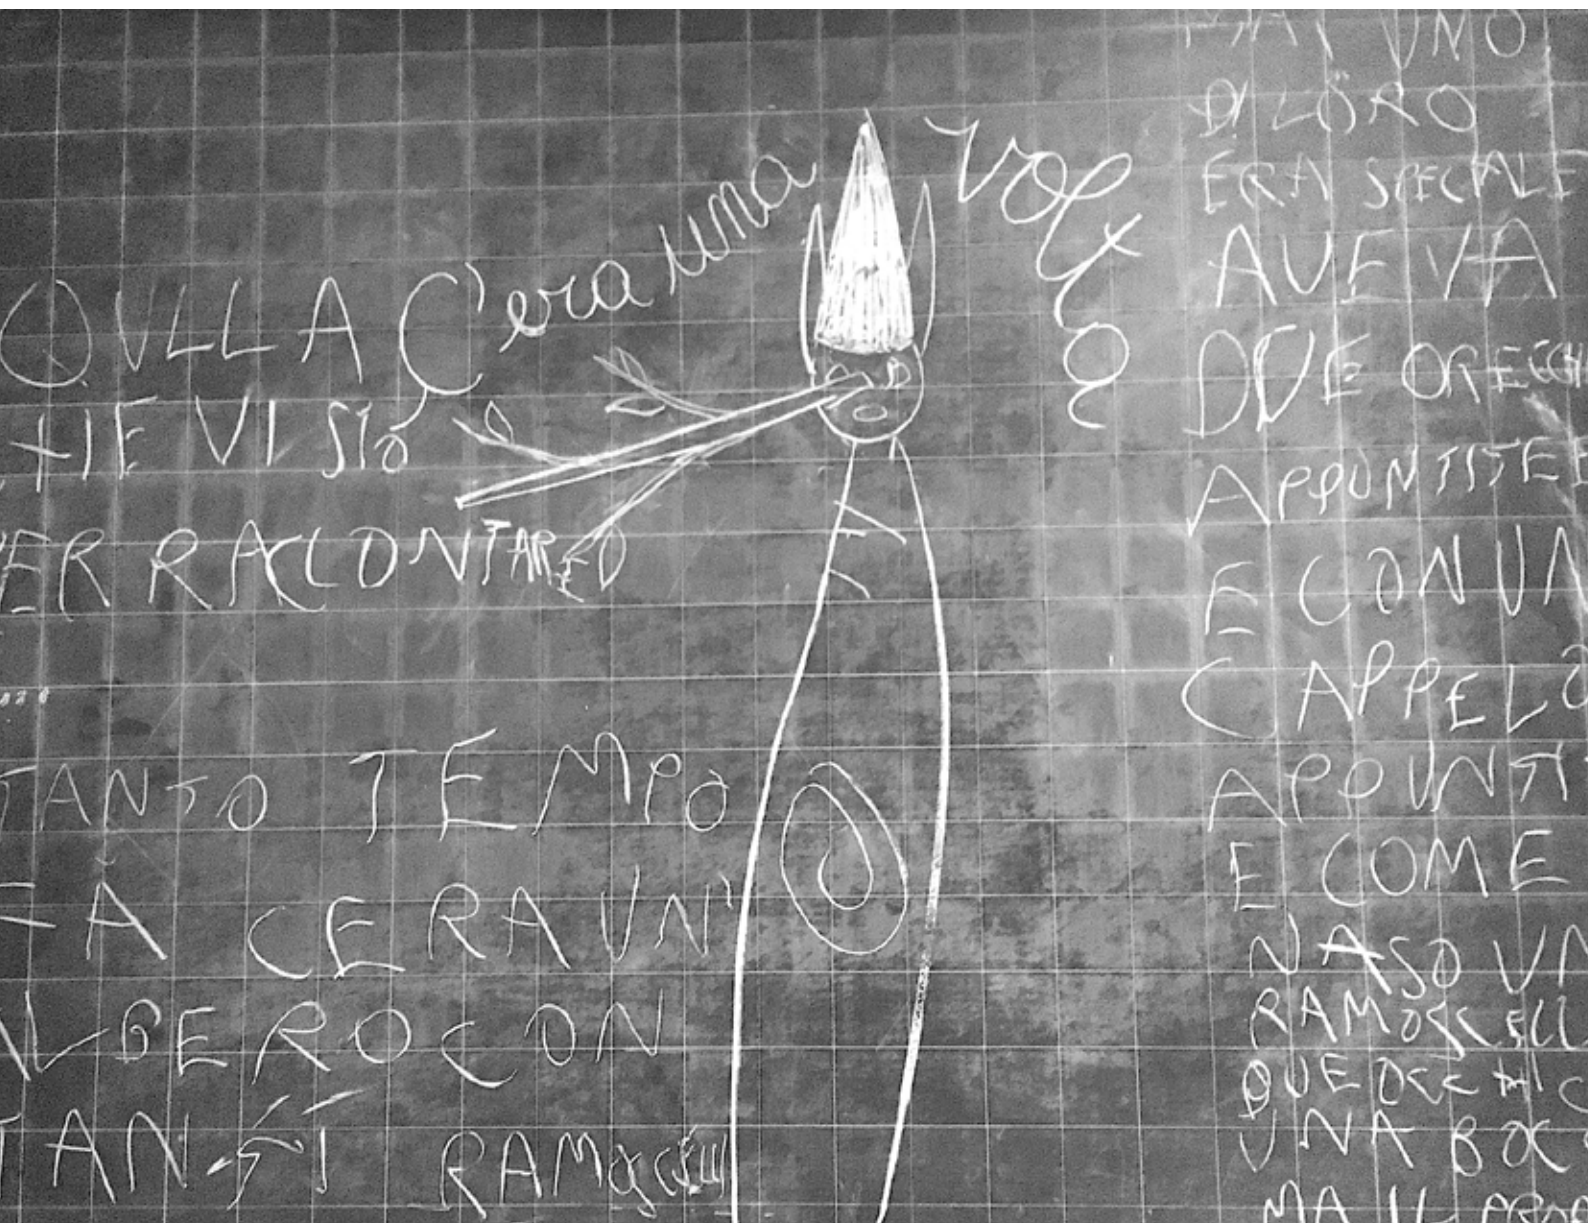 C'era una volta
QULLA
HE VI STO
ER RACCONTARED
TANTO TEMPO
FA CERA UN'
ALBERO CON
TANTI RAMOSCELLI
MA UNO
DI LORO
ERA SPECIALE
AVEVA
DUE ORECCHI
APPUNTITE
E CON UN
CAPPELO
APPUNTI
E COME
NASO UN
RAMOSCELL
QUE OCCHI
UNA BOC
MA IL